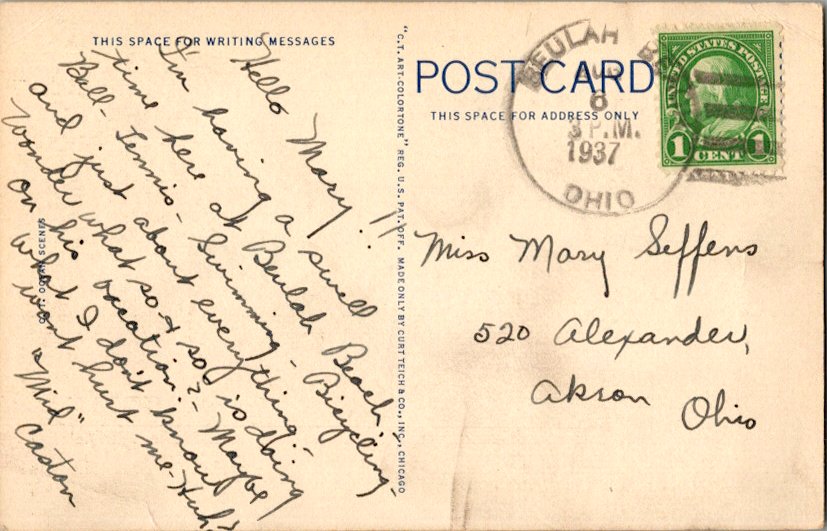 THIS SPACE FOR WRITING MESSAGES
Hello Mary!!
I'm having a swell
time here at Beulah Beach,
Ball - Tennis - Swimming - Bicycling -
and just about everything. -
Wonder what so & so is doing
on his vacation? - Maybe
what I don't know
wont hurt me - Huh?
"Mid"
Caston
C.T. OCEAN SCENES
"C.T. ART-COLORTONE" REG. U.S. PAT. OFF. MADE ONLY BY CURT TEICH & CO., INC., CHICAGO
POST CARD
THIS SPACE FOR ADDRESS ONLY
BEULAH
AUG
6
3 P.M.
1937
OHIO
UNITED STATES POSTAGE
1 CENT 1
Miss Mary Seffens
520 Alexander,
Akron
Ohio